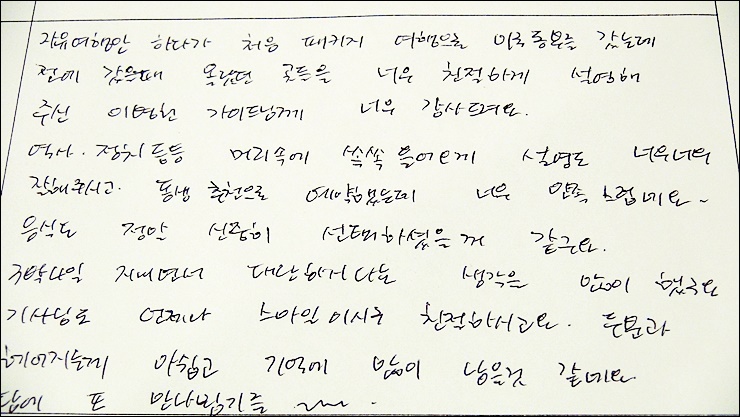 자유여행만 하다가 처음 패키지 여행으로 미국동부를 갔는데
전에 갔을때 몰랐던 곳들을 너무 친절하게 설명해
주신 이변헌 가이드님께 너무 감사드려요.
역사·정치등등 머리속에 쏙쏙 들어오게 설명도 너무너무
잘해주시고. 동생 추천으로 예약했는데 너무 만족스럽네요~
음식도 정말 신중히 선택하셨을거 같구요.
3박4일 지내면서 대단하거다는 생각을 많이 했구요
기사님도 언제나 스마일이시구 친절하시고요. 두분과
헤어지는게 아쉽고 기억에 많이 남을것 같네요
담에 또 만나뵙기를 ~~.